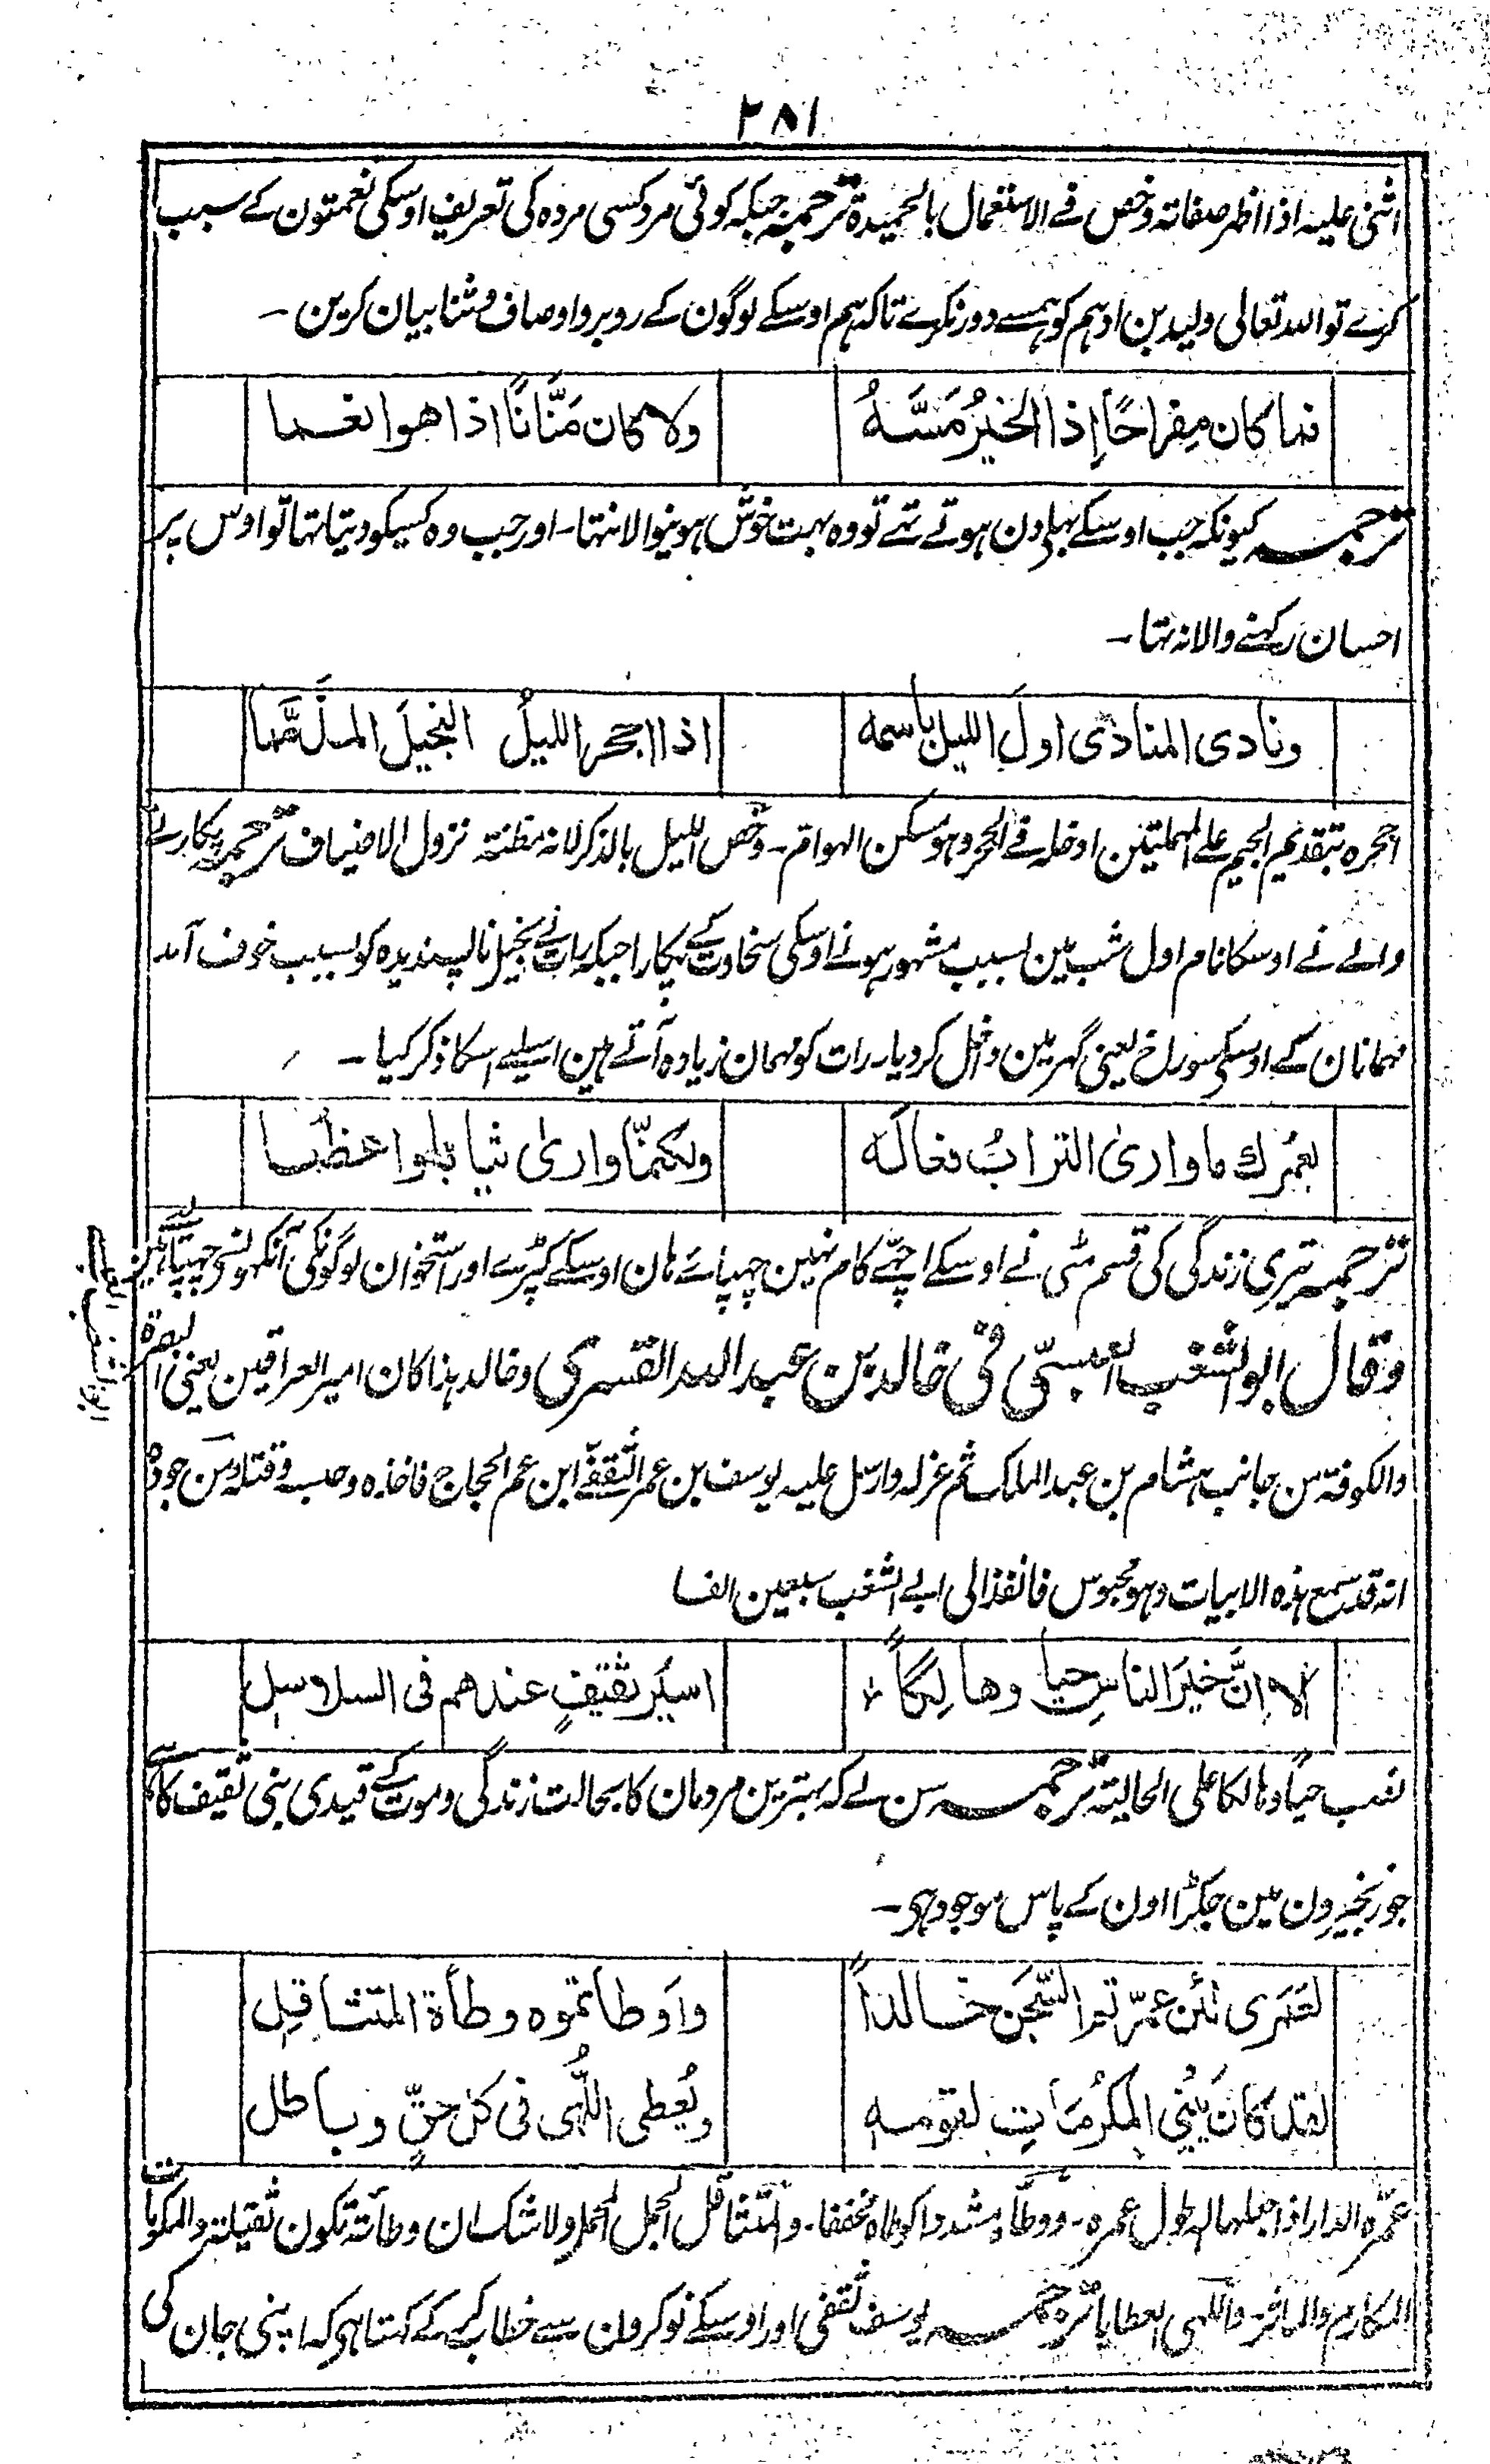 ۲۸۱
اثنی علیہ اذا اظهر صفاتہ وخص فے الاستعمال بالحمیدۃ ترجمہ جبکہ کوئی مرد کسی مردہ کی تعریف اوسکی نعمتون کے سبب
کرے تو اللہ تعالی ولید بن ادہم کو ہمسے دور نکرے تاکہ ہم اوسکے لوگون کے روبرو اوصاف و ثنا بیان کرین ۔
فما كان مِفراحًا إذا الخيرُ مَسَّهُ ولا كان مَنَّانًا اذا هو انعما
ترجمہ کیونکہ جب اوسکے بہلے دن ہوتے تہے تو وہ بہت خوش ہونیوالا نتہا ۔ اور جب وہ کسیکو دیتا تہا تو اوس پر
احسان رکہنے والا نہ تہا ۔
ونادى المنادى اولَ الليل باسمه اذا اجحر الليلُ البخيلَ المذمَّما
اجحرہ بتقدیم الجیم علے المہملتین ادخلہ فے الجحر وہو مسکن الہوام ۔ وخص اللیل بالذکر لانہ مظنۃ نزول الاضیاف ترجمہ پکارنے
والے نے اوسکا نام اول شب مین بسبب مشہور ہونے اوسکی سخاوت کے پکارا جبکہ رات نے بخیل ناپسندیدہ کو بسبب خوف آمد
مہمانان کے اوسکے سوراخ یعنی گہر مین داخل کر دیا ۔ رات کو مہمان زیادہ آتے ہین اسلیے اسکا ذکر کیا ۔
لعمرك ما وارى الترابُ فعاله ولكنما وارى ثيابا واعظما
ترجمہ تیری زندگی کی قسم مٹی نے اوسکے اچہے کام نہین چہپائے ہان اوسکے کپڑے اور استخوان لوگونکی آنکہونسے چہپائے ہین
وقال ابو الشغب العبسیّ فی خالد بن عبد اللہ القسری وخالد ہذا کان امیر العراقین یعنی البصرۃ
والکوفۃ من جانب ہشام بن عبد الملک ثم عزلہ وارسل علیہ یوسف بن عمر الثقفے ابن عم الحجاج فاخذہ وحبسہ وقتلہ ومن جودہ
انہ قد سمع ہذہ الابیات وہو محبوس فانفذ الی ابے الشغب سبعین الفا
الا انَّ خيرَ الناسِ حيا وهالكًا اسيرُ ثقيفٍ عندهم فى السلاسل
نصب حیًا وہالکا علی الحالیۃ ترجمہ سن لے کہ بہترین مردمان کا بحالت زندگی و موت کے قیدی بنی ثقیف کا ہے
جو زنجیرون مین جکڑا اون کے پاس موجود ہی ۔
لعمرى لئن عمّرتم السّجن خالدًا واوطأتموه وطأة المتثاقل
لقد كان يَبني المكرُمات لقومه ويُعطى اللُّهى فى كل حقّ وباطل
عمّرہ الدار اذا جعلہا لہ طول عمرہ ۔ ووطّأہ مشددا کوطأہ مخففا ۔ والمتثاقل الجمل المحمل ولا شک ان وطأتہ تکون ثقیلۃ والمکرمات
المکارم والمآثر ۔ واللہی العطایا ترجمہ یوسف ثقفی اور اوسکے نوکرون سے خطاب کر کے کہتا ہی کہ اپنی جان کی
ابو الشغب العبسی